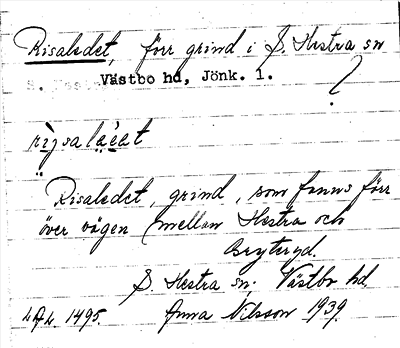 Risaledet, förr grind i S. Hestra sn
Västbo hd, Jönk. l.
?
Risaledet, grind, som fanns förr
över vägen mellan Hestra och
Bryteryd.
S. Hestra sn. Västbo hd.
L.A.L. 1495. Anna Nilsson 1939.